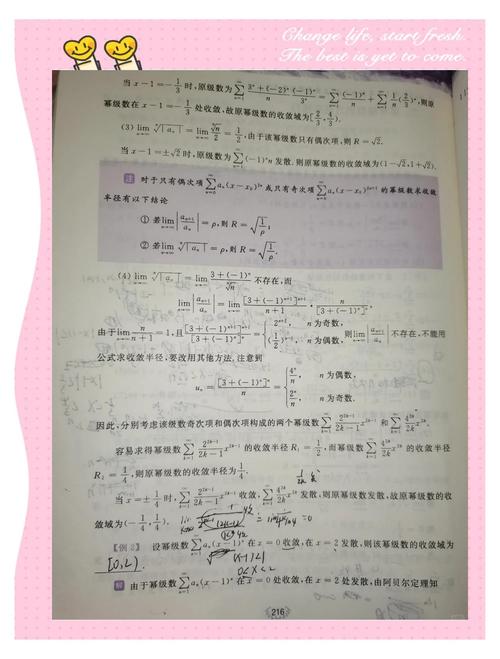 Change life, start fresh.
The best is yet to come.
当 x－1＝－1/3 时,原级数为 ∑_{n=1}^{∞} (3ⁿ＋(－2)ⁿ)/n · (－1)ⁿ/3ⁿ ＝ ∑_{n=1}^{∞} (－1)ⁿ/n ＋ ∑_{n=1}^{∞} 1/n (2/3)ⁿ,则原
幂级数在 x－1＝－1/3 处收敛,故原幂级数的收敛域为[2/3, 4/3).
(3) lim_{n→∞} ⁿ√|aₙ| ＝ lim_{n→∞} ⁿ√n/2 ＝ 1/2,由于该幂级数只有偶次项,则 R＝√2.
当 x－1＝±√2 时,原级数为 ∑_{n=1}^{∞} (－1)ⁿn 发散.则原幂级数的收敛域为(1－√2,1＋√2).
注 对于只有偶次项 ∑_{n=0}^{∞} aₙ(x－x₀)²ⁿ 或只有奇次项 ∑_{n=0}^{∞} aₙ(x－x₀)²ⁿ⁺¹ 的幂级数求收敛
半径有以下结论
① 若 lim_{n→∞} |aₙ₊₁/aₙ| ＝ρ,则 R＝√(1/ρ);
② 若 lim_{n→∞} ⁿ√|aₙ| ＝ρ,则 R＝√(1/ρ).
(4) lim_{n→∞} ⁿ√|aₙ| ＝ lim_{n→∞} (3＋(－1)ⁿ)/ⁿ√n 不存在,而
lim_{n→∞} |aₙ₊₁/aₙ| ＝ lim_{n→∞} [3＋(－1)ⁿ⁺¹]ⁿ⁺¹/(n＋1) · n/[3＋(－1)ⁿ]ⁿ
由于 lim_{n→∞} n/(n＋1) ＝1,且 [3＋(－1)ⁿ⁺¹]ⁿ⁺¹/[3＋(－1)ⁿ]ⁿ ＝ { n 为奇数, n 为偶数, 则 lim_{n→∞} |aₙ₊₁/aₙ| 不存在,不能用
公式求收敛半径,要改用其他方法,注意到
uₙ＝[3＋(－1)ⁿ]ⁿ/n ＝ { 4ⁿ/n, n 为偶数, 2ⁿ/n, n 为奇数.
因此,分别考虑该级数奇次项和偶次项构成的两个幂级数 ∑_{k=1}^{∞} 2²ᵏ⁻¹/(2k－1) x²ᵏ⁻¹ 和 ∑_{k=1}^{∞} 4²ᵏ/2k x²ᵏ.
容易求得幂级数 ∑_{k=1}^{∞} 2²ᵏ⁻¹/(2k－1) x²ᵏ⁻¹ 的收敛半径 R₁＝1/2,而幂级数 ∑_{k=1}^{∞} 4²ᵏ/2k x²ᵏ 的收敛半径
R₂＝1/4,则原幂级数的收敛半径为 1/4.
当 x＝±1/4 时, ∑_{k=1}^{∞} 2²ᵏ⁻¹/(2k－1) x²ᵏ⁻¹ 收敛, ∑_{k=1}^{∞} 4²ᵏ/2k x²ᵏ 发散,则原幂级数发散,故原幂级数的收
敛域为(－1/4, 1/4).
【例 3】 设幂级数 ∑_{n=1}^{∞} aₙ(x－1)ⁿ 在 x＝0 收敛,在 x＝2 发散,则该幂级数的收敛域为
[0,2). |x-1|<1
0≤x<2
解 由于幂级数 ∑_{n=1}^{∞} aₙ(x－1)ⁿ 在 x＝0 处收敛,在 x＝2 处发散,由阿贝尔定理知
216